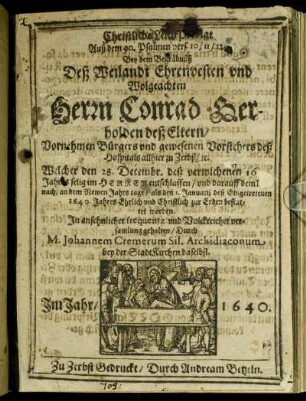 Christliche Leich Predigt
Auß dem 90. Psalmen vers 10/11/12.
Bey dem Begräbnüß
Deß Weilandt Ehrenvesten vnd
Wolgeachten
Herrn Conrad Ber-
holden deß Eltern/
Vornehmen Bürgers vnd gewesenen Vorstehers deß
Hospitals allhier zu Zerbst/ ꝛc.
Welcher den 28. Decembr. deß verwichenen 16
Jahrs selig im HERREN entschlaffen/ vnd darauff dem
nach/ an dem Newen Jahrs tage/ den 1. Januarij deß Eingetretenen
1640. Jahres Ehrlich vnd Christlich zur Erden bestat-
tet worden.
In ansehnlicher frequentz vnd Volckreicher ver-
samlung gehalten/ Durch
M. Johannem Cremerum Sil. Archidiaconum
bey der StadtKirchen daselbst.
Im Jahr/ 1640.
Zu Zerbst Gedruckt/ Durch Andream Betzeln.